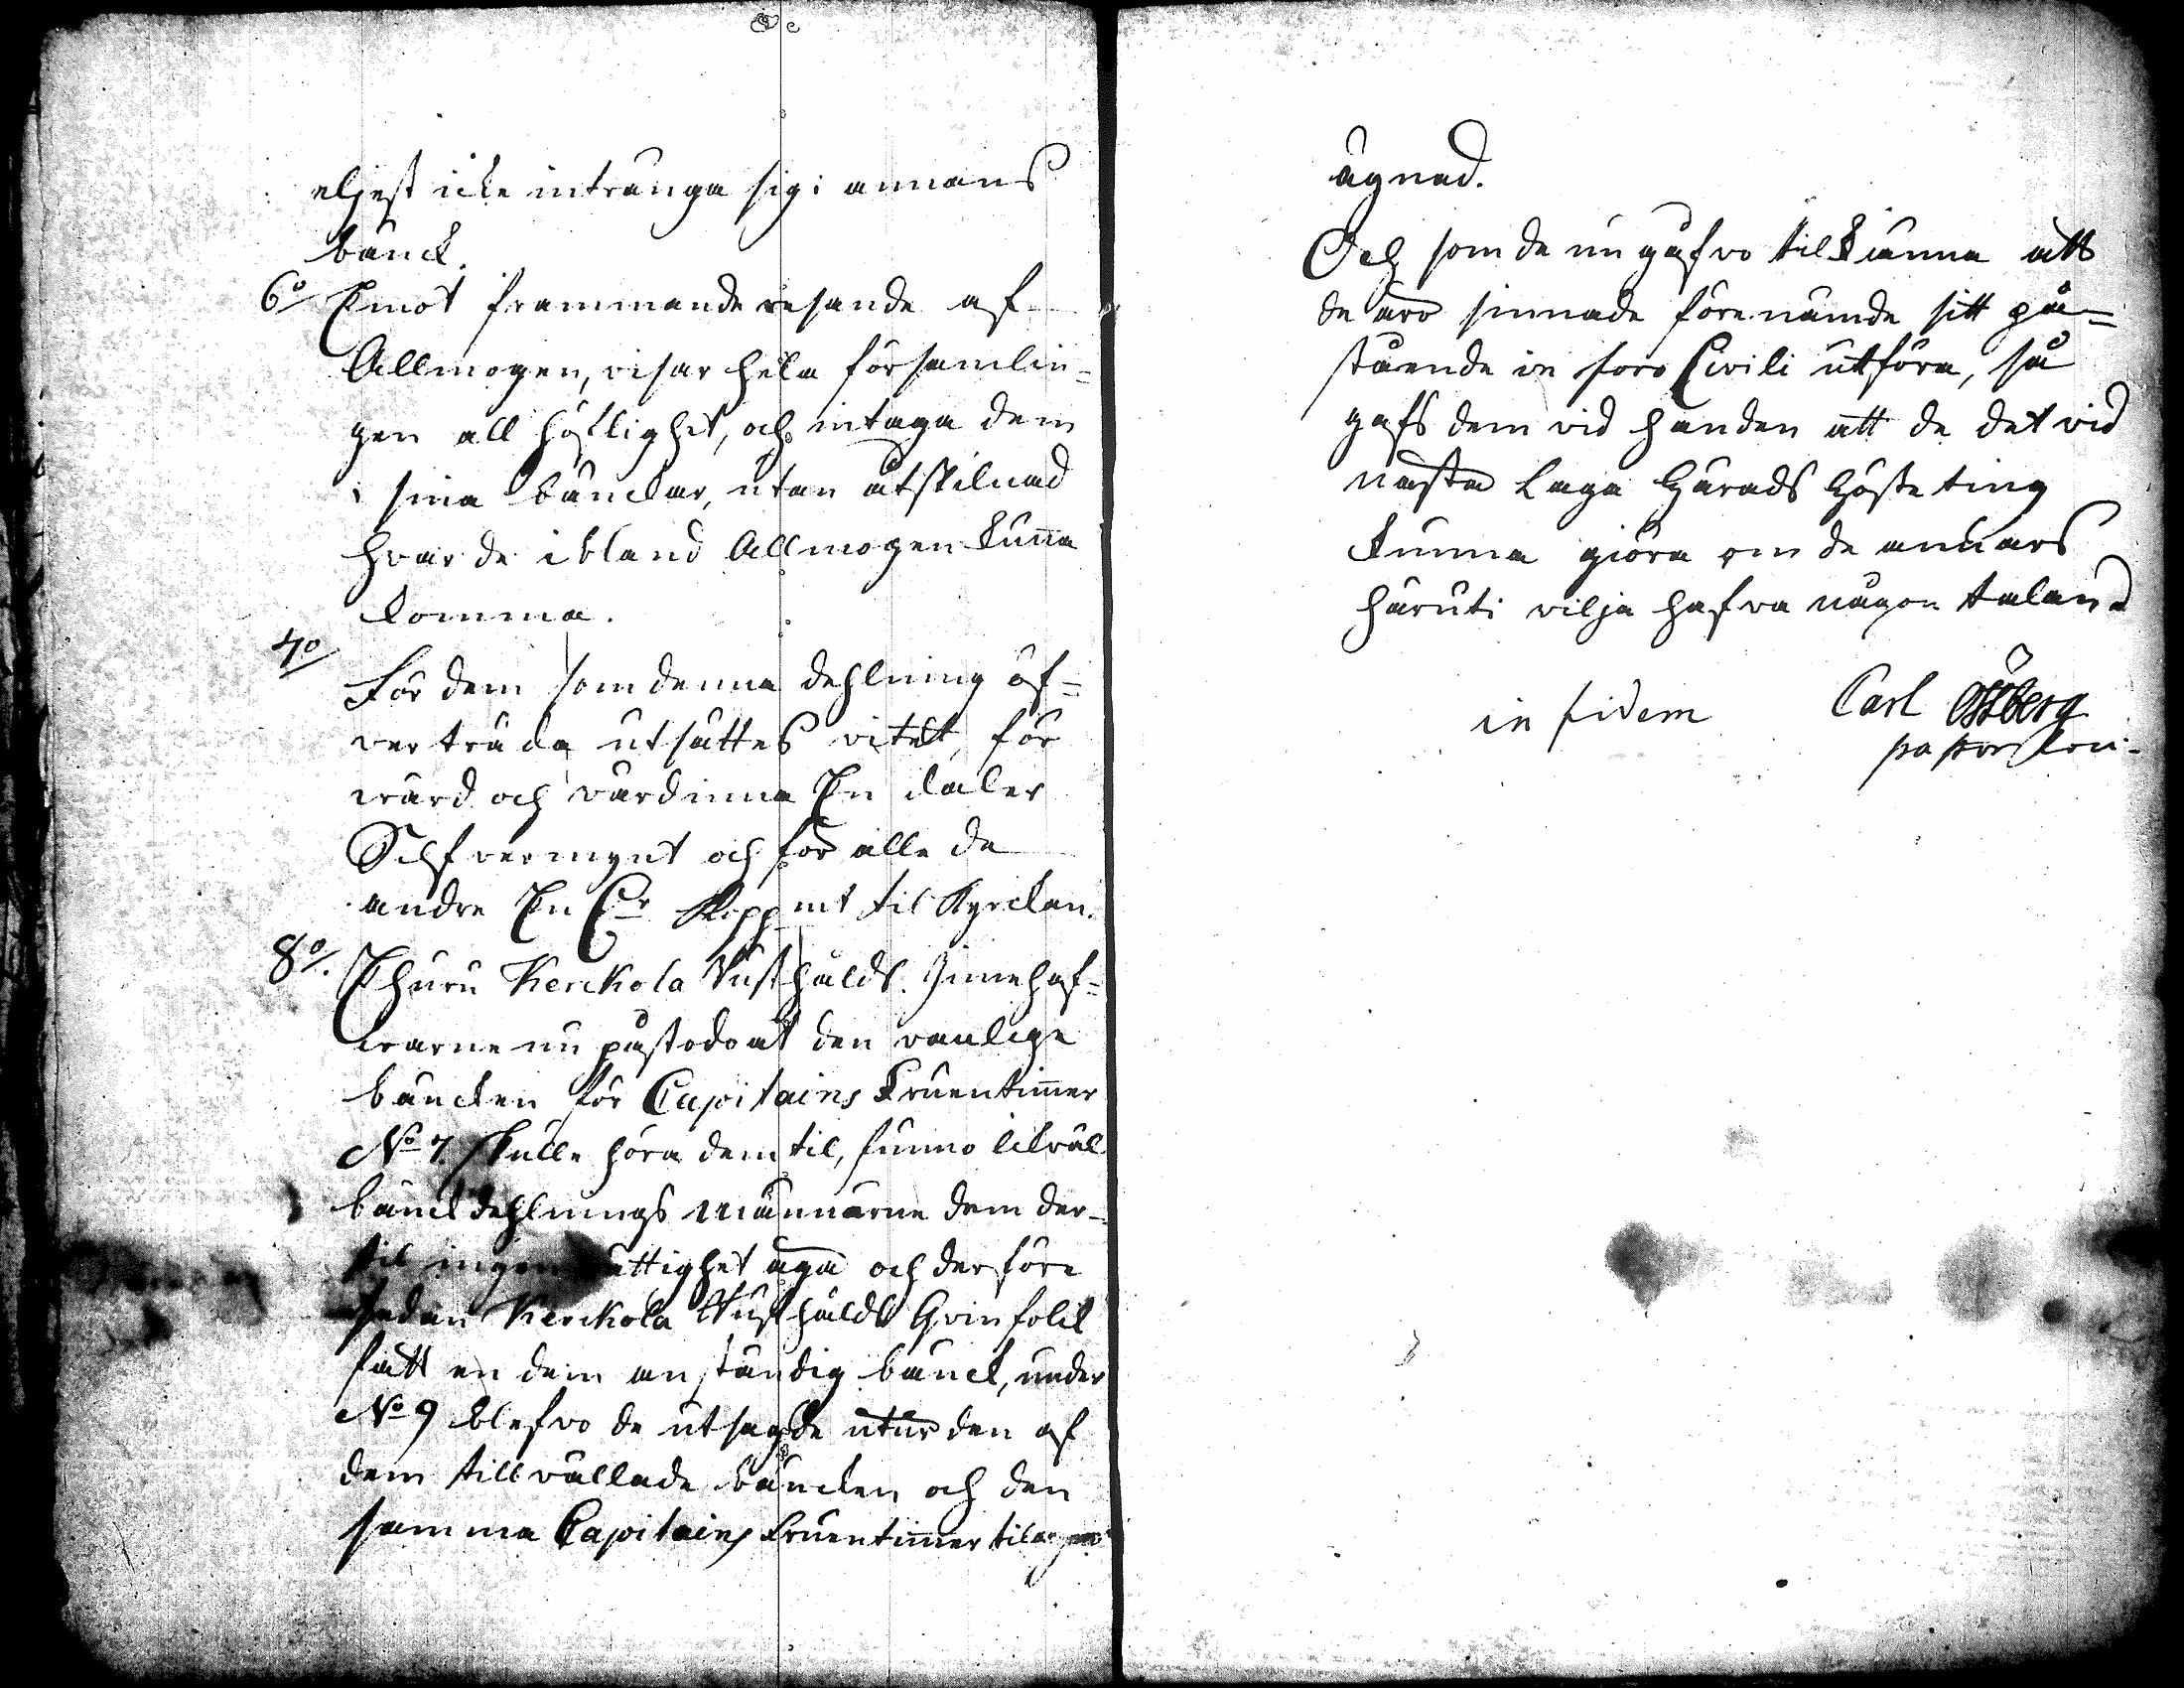 eljest icke intränga sig i annans
bänck.
6o/ Emot främmande resande af
Allmogen, visar hela församlin=
gen all höflighet, och intaga dem
i sina bänckar, utan åtskilnad
hvar de ibland Allmogen kuña
komma.
7o/
För dem som denna dehlning öf=
verträda utsättes vitet, för
wärd och värdinna En daler
Silfvermynt och för alle de
andre En Er koppmt til Kyrckan.
8o/. Ehuru Kerckola Rusthålds Innehaf=
warne nu påstodo at den vanlige
bäncken för Capitains Fruentim̃er
No 7. skulle höra dem til, funno likväl
bänckdehlnings männarne dem der=
til ingen rättighet äga och derföre
sedan Kerckola Rusthålds Qvinfolck
fått en dem anständig bänck, under
No 9 blefvo de utsagde utur den af
dem tillvällade bäncken och den
samma Capitains Fruentim̃er til
ägnad.
Och som de nu gåfvo tilkänna att
de äro sinnade förenämde sitt på=
stående in foro Civili utföra, så
gafs dem vid handen att de det vid
nästa Laga Härads Hösteting
kunna giöra om de annars
häruti vilja hafva någon talan
in fidem Carl Ossberg
pastor loci.